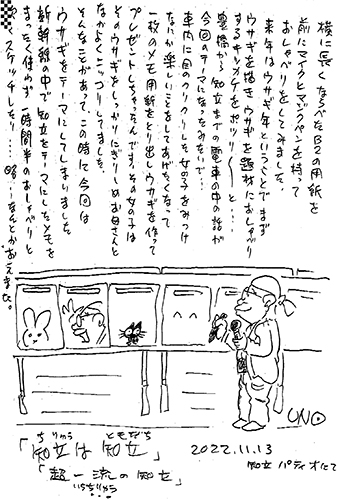 横に長くならべたB2の用紙を
前にマイクとマジックペンを持って
おしゃべりをしてみました。
来年はウサギ年ということでまず
ウサギを描きウサギを題材におしゃべり
するキッカケをポツリ〱と…
豊橋から知立までの電車の中の話が
今回のテーマになったみたいで…
車内に目のクリクリした女の子をみつけ
なにか楽しいことをしてあげたくなって
一枚のメモ用紙をとり出しウサギを作って
プレゼントしちゃったんです。その女の子は
そのウサギをしっかりにぎりしめお母さんと
なかよくニッコリしてました。
そんなことがあって、この時に今回は
ウサギをテーマにしてしまいました
新幹線の中で知立をテーマにしたメモを
まったく使わず一時間半のおしゃべりと
スケッチしたり…なんとかおえました。
UNO
ちりゅう ともだち
「知立は知立」
「超一流の知立」
2022.11.13
知立パティオにて